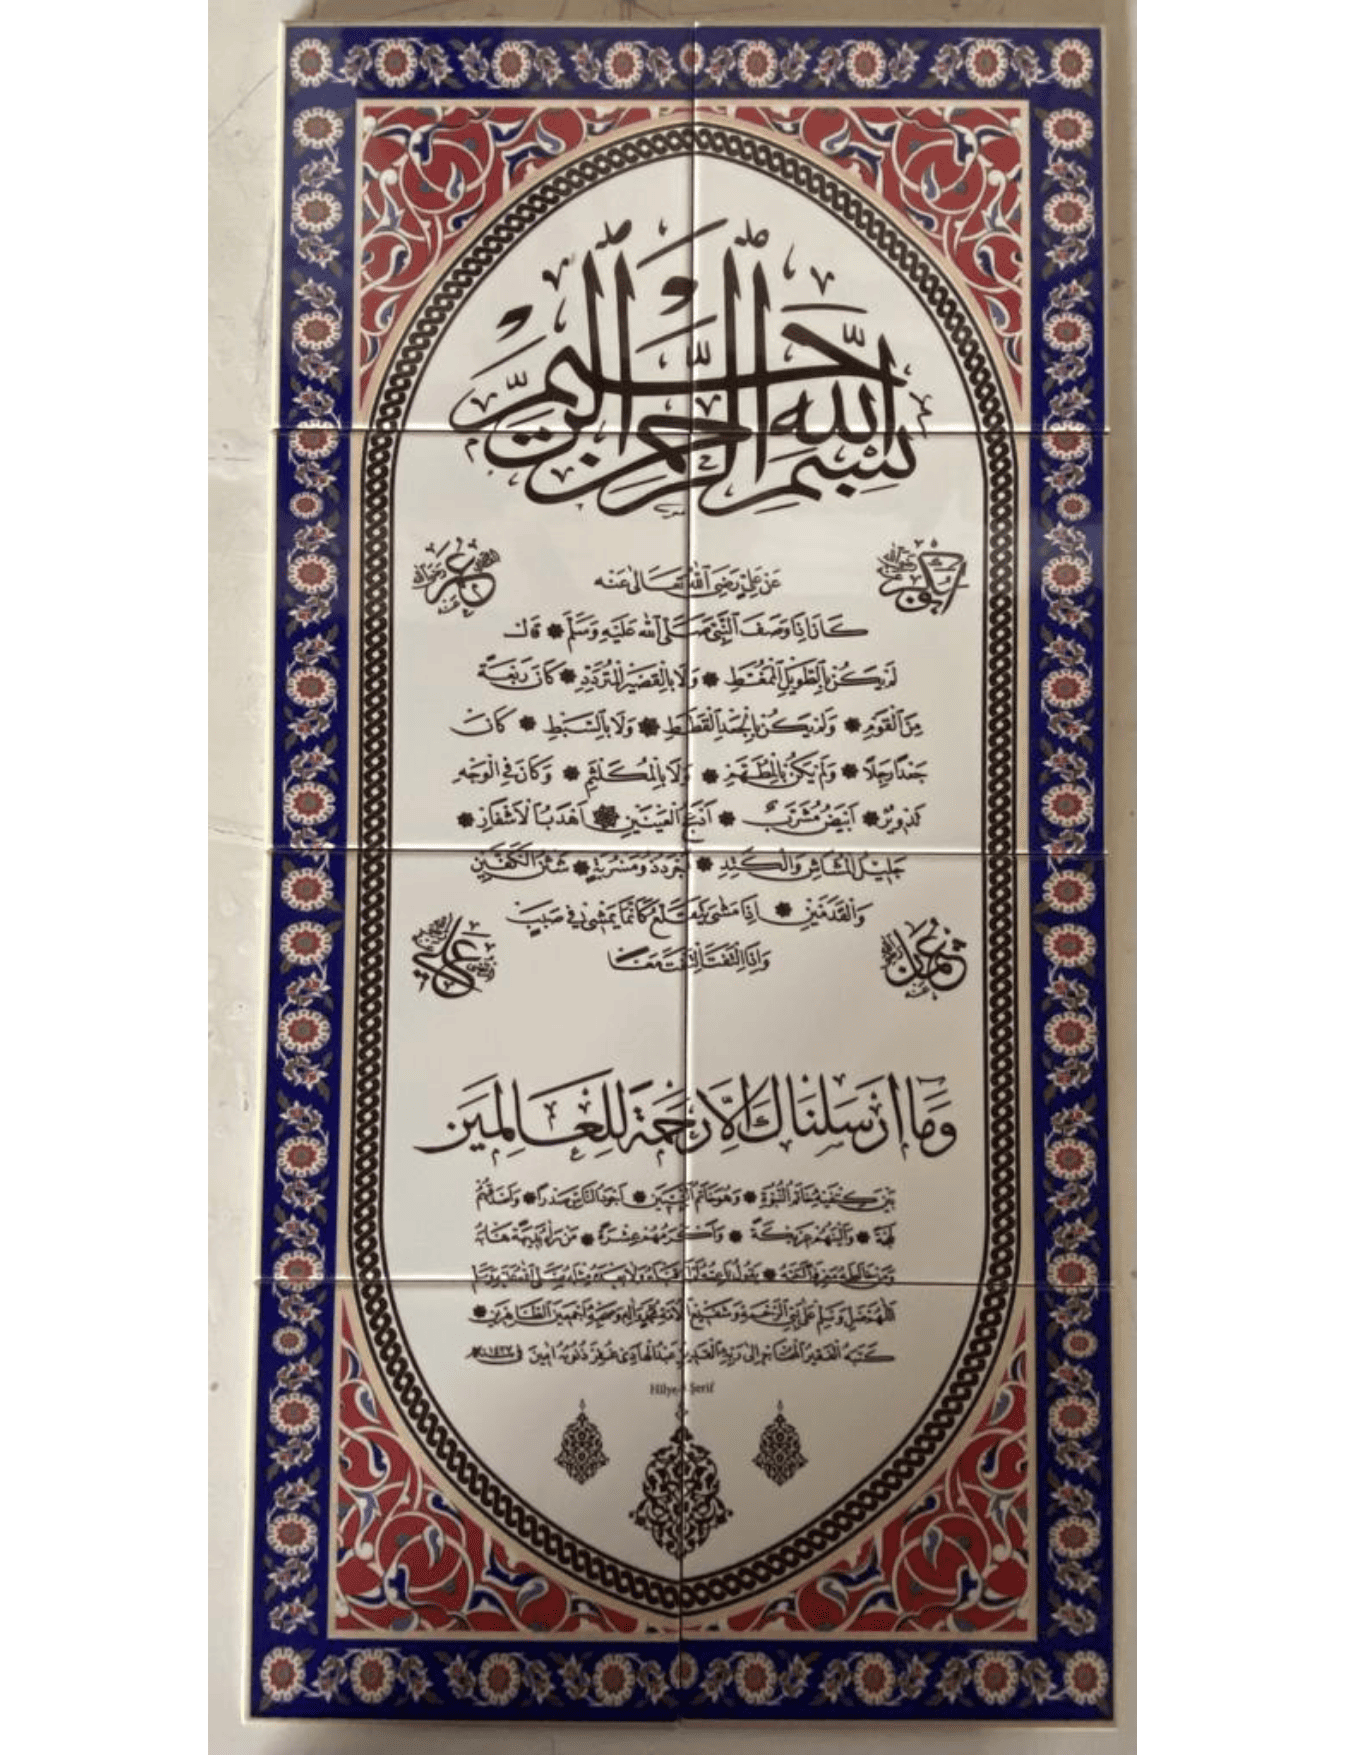 بِسْمِ اللهِ الرَّحْمٰنِ الرَّحِيمِ
ابوبكر رضي الله عنه
عمر رضي الله عنه
عَنْ عَلِيٍّ رَضِيَ اللهُ تَعَالٰى عَنْه
كَانَ اِذَا وَصَفَ النَّبِيَّ صَلَّى اللهُ عَلَيْهِ وَسَلَّمَ ❋ قَالَ
لَمْ يَكُنْ بِالطَّوِيلِ الْمُمَّغِطِ ❋ وَلَا بِالْقَصِيرِ الْمُتَرَدِّدِ ❋ كَانَ رَبْعَةً
مِنَ الْقَوْمِ ❋ وَلَمْ يَكُنْ بِالْجَعْدِ الْقَطَطِ ❋ وَلَا بِالسَّبْطِ ❋ كَانَ
جَعْدًا رَجِلًا ❋ وَلَمْ يَكُنْ بِالْمُطَهَّمِ ❋ وَلَا بِالْمُكَلْثَمِ ❋ وَكَانَ فِي الْوَجْهِ
تَدْوِيرٌ ❋ اَبْيَضُ مُشْرَبٌ ❋ اَدْعَجُ الْعَيْنَيْنِ ❋ اَهْدَبُ الْاَشْفَارِ ❋
جَلِيلُ الْمُشَاشِ وَالْكَتَدِ ❋ اَجْرَدُ ذُو مَسْرُبَةٍ ❋ شَثْنُ الْكَفَّيْنِ
وَالْقَدَمَيْنِ ❋ اِذَا مَشٰى يَتَقَلَّعُ كَاَنَّمَا يَمْشِي فِي صَبَبٍ
وَاِذَا الْتَفَتَ الْتَفَتَ مَعًا
عثمان رضي الله عنه
علي رضي الله عنه
وَمَا اَرْسَلْنَاكَ اِلَّا رَحْمَةً لِلْعَالَمِينَ
بَيْنَ كَتِفَيْهِ خَاتَمُ النُّبُوَّةِ ❋ وَهُوَ خَاتَمُ النَّبِيِّينَ ❋ اَجْوَدُ النَّاسِ صَدْرًا ❋ وَاَصْدَقُهُمْ
لَهْجَةً ❋ وَاَلْيَنُهُمْ عَرِيكَةً ❋ وَاَكْرَمُهُمْ عِشْرَةً ❋ مَنْ رَاٰهُ بَدِيهَةً هَابَهُ
وَمَنْ خَالَطَهُ مَعْرِفَةً اَحَبَّهُ ❋ يَقُولُ نَاعِتُهُ لَمْ اَرَ قَبْلَهُ وَلَا بَعْدَهُ مِثْلَهُ صَلَّى اللهُ عَلَيْهِ وَسَلَّمَ
اَللّٰهُمَّ صَلِّ وَسَلِّمْ عَلٰى نَبِيِّ الرَّحْمَةِ وَشَفِيعِ الْاُمَّةِ مُحَمَّدٍ وَاٰلِهِ وَصَحْبِهِ اَجْمَعِينَ الطَّاهِرِينَ ❋
كَتَبَهُ الْفَقِيرُ الْمُحْتَاجُ اِلٰى رَبِّهِ الْقَدِيرِ عَبْدُ الْهَادِي غُفِرَ ذُنُوبُهُ اٰمِينَ
Hilye-i Şerif